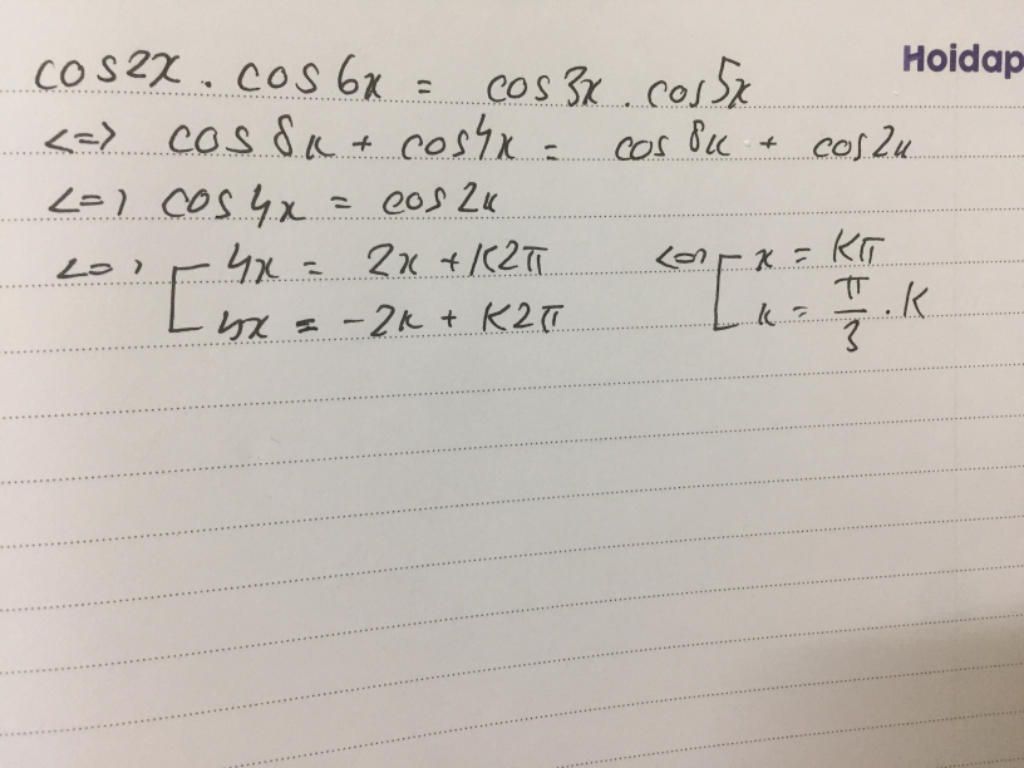 Hoidap
cos2x . cos6x = cos3x . cos5x
<=> cos8x + cos4x = cos8x + cos2x
<=> cos4x = cos2x
<=> [ 4x = 2x + K2π <=> [ x = Kπ
4x = -2x + K2π x = π/3 . K